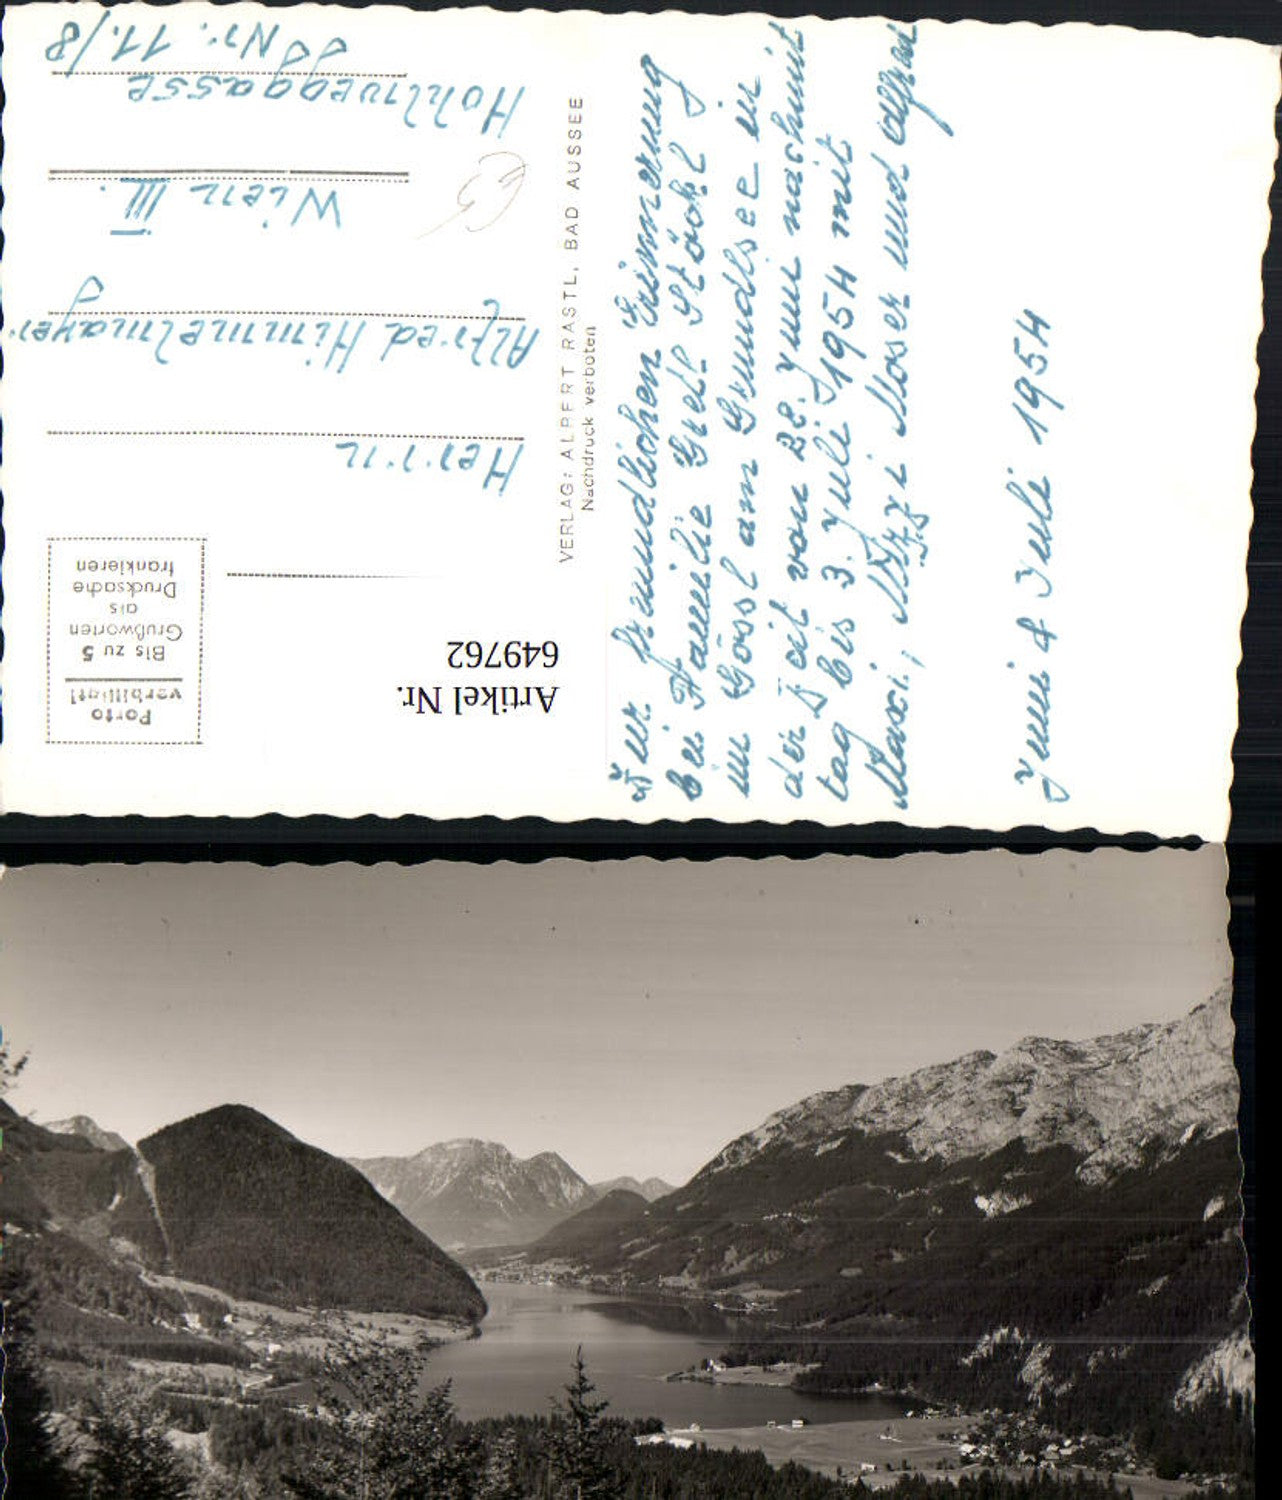 Zur freundlichen Erinnerung
bei Familie Gretl Stöckl
in Gössl am Grundlsee in
der Zeit von 22. Juni nachmit
tag bis 3. Juli 1954 mit
Maxi, Mizzi Moser und Alfred
Juni & Juli 1954
VERLAG: ALBERT RASTL, BAD AUSSEE
Nachdruck verboten
Artikel Nr.
649762
Porto
verbilligt!
Bis zu 5
Grußworten
als
Drucksache
frankieren
Herrn
Alfred Himmelmayer
Wien III.
Hohlweggasse
Nr. 11./8